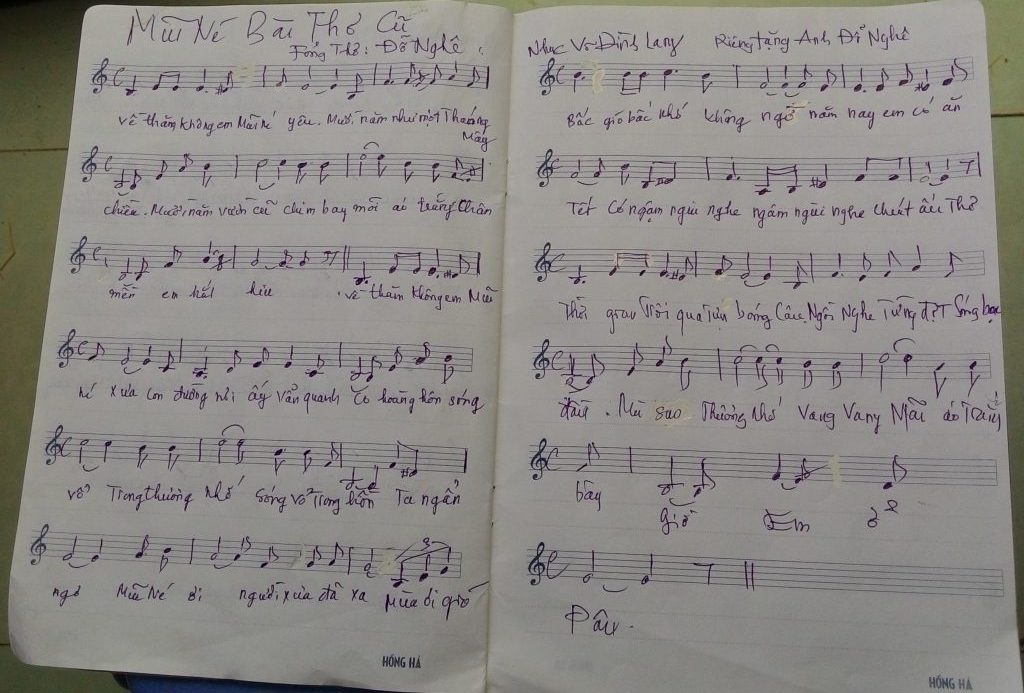 Mũi Né Bài Thơ Cũ
Fỏng Thơ: Đỗ Nghê
về thăm không em Mũi Né yêu. Mười năm như một Thoáng Mây
chiều. Mười năm vườn cũ chim bay mỏi áo trắng Chân
mền em hát
về thăm không em Mũi
né xưa con đường nơi ấy vẫn quanh Co hoàng hôn sóng
vỗ Trong thương nhớ Sóng vỗ Trong hồn Ta ngẩn
ngơ Mũi Né ơi người xưa đã xa Mùa ơi gió
HỒNG HÀ
Nhạc Võ Đình Lang Riêng tặng Anh Đỗ Nghê
Bấc gió bấc nhớ không ngờ năm nay em có ăn
Tết Có ngậm ngùi nghe ngậm ngùi nghe chút ấu Thơ
Thời gian Trôi qua Tựa bóng Câu. Ngồi Nghe Từng đợT Sóng bạc
đầu. Mù sao Thương nhớ vang vang Mãi áo Trắng
bây giờ Em ở
Đâu.
HỒNG HÀ